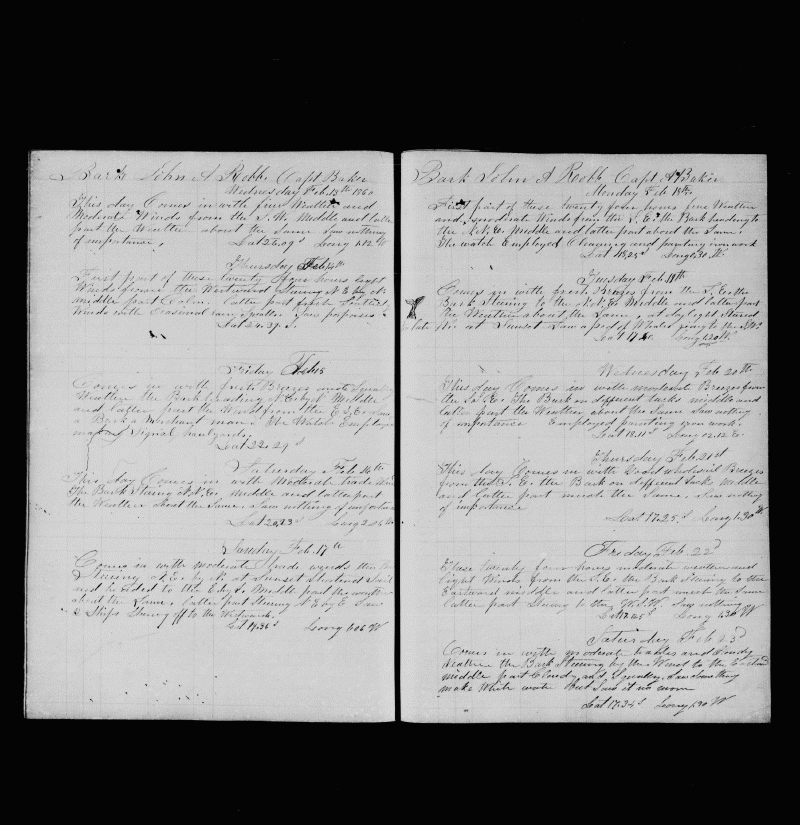 Bark John A Robb Capt Baker
Wednesday Feb 13th 1860
This day Comes in with fine Weather and
Moderate Winds from the S.W. Middle and latter
part the Weather about the Same Saw nothing
of importance, Lat 26.09 S Long 4.12 W
Thursday Feb 14th
First part of these twenty four hours light
Winds from the Westward Steering N E by N
middle part Calm. Latter part fresh
Winds with Occasional rain Squalls Saw porpoises
Lat 24.39 S.
Friday Feb 15
Comes in with fresh Breezes and Squally
Weather the Bark heading N E by N Middle
and latter part the Wind from the E.S.E. Saw
a Bark a Merchant man. The Watch Employed
making Signal halyards.
Lat 22.29 S
Saturday Feb 16th
This day Comes in with Moderate trade Winds
The Bark Steering N.N.E. middle and latter part
the Weather about the Same. Saw nothing of importance
Lat 20.23 S Long 2.06 W
Sunday Feb 17th
Comes in with moderate trade winds the
Steering N.E. by N. at Sunset Shortend Sail
and headed to the E by S. Middle part the weather
about the Same, latter part Steering N E by E Saw
2 Ships Steering off to the Westward.
Lat 19.36 S Long 1.06 W
Bark John A Robb Capt A Baker
Monday Feb 18th
First part of these twenty four hours fine Weather
and moderate Winds from the S.E. the Bark heading to
the N.N.E. Middle and latter part about the Same.
The watch Employed Cleaning and painting iron work
Lat 18.25 S Long 1.30 W
Tuesday Feb 19th
Comes in with fresh Breezes from the S.E. the
Bark Steering to the N.N.E. Middle and latter part
the Weather about the Same, at daylight Steered
at Sunset Saw a pod of Whales going to the
Lat 17 Long 1.20
Wednesday Feb 20th
This day Comes in with moderate Breezes from
the S.E. The Bark on different tacks middle and
latter part the Weather about the Same Saw nothing
of importance Employed painting iron work.
Lat 18.11 S Long 12.12 E.
Thursday Feb 21st
This day Comes in with Good wholesail Breezes
from the S.E. the Bark on different tacks Middle
and latter part much the Same, Saw nothing
of importance
Lat 17.25 S Long 1.30 W
Friday Feb. 22d
These twenty four hours moderate weather and
light Winds from the S.E. the Bark Steering to the
Eastward middle and latter part much the Same
latter part Steering to the W.S.W. Saw nothing
Lat Long 1.30 W
Saturday Feb 23d
Comes in with moderate and Cloudy
Weather the Bark Steering by the Wind to the Eastward
middle part Cloudy and Squally. Saw Something
make White water but Saw it no more
Lat 17.34 S Long 1.30 W